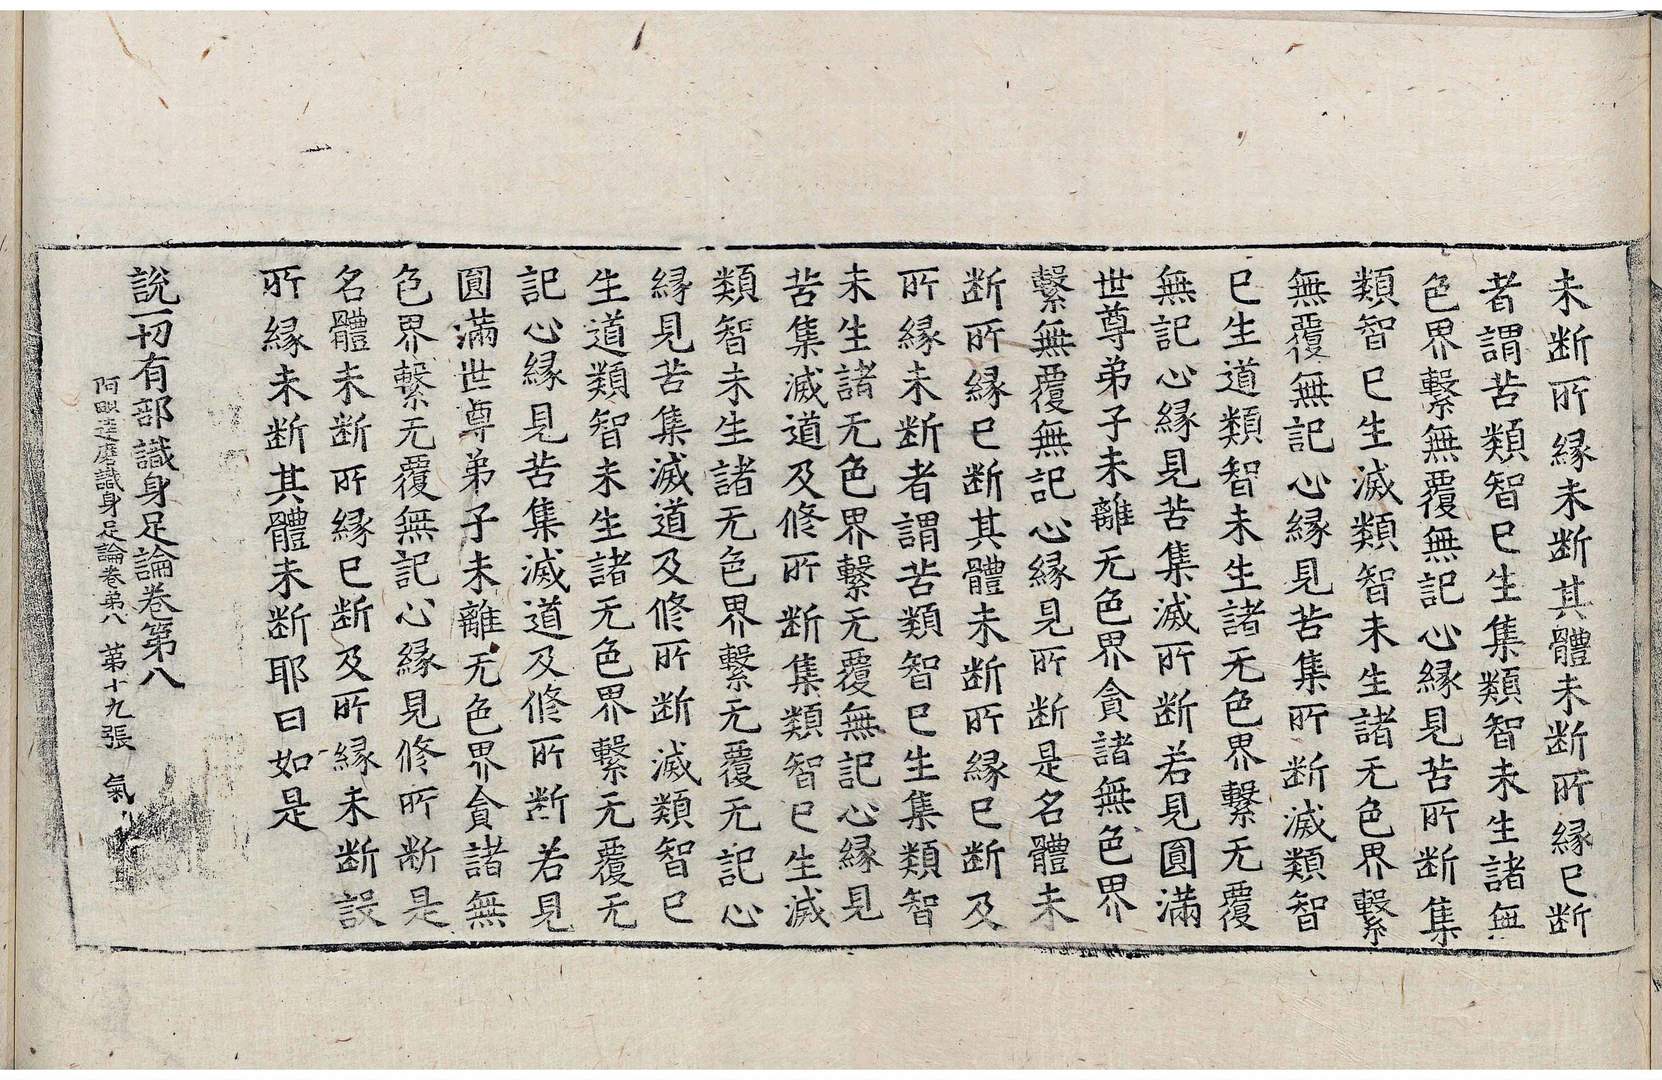 未断所縁未断其體未断所縁已断
者謂苦類智已生集類智未生諸無
色界繫無覆無記心縁見苦所断集
類智已生滅類智未生諸无色界繫
無覆無記心縁見苦集所断滅類智
已生道類智未生諸无色界繫无覆
無記心縁見苦集滅所断若見圓滿
世尊弟子未離无色界貪諸無色界
繫無覆無記心縁見所断是名體未
断所縁已断其體未断所縁已断及
所縁未断者謂苦類智已生集類智
未生諸无色界繫无覆無記心縁見
苦集滅道及修所断集類智已生滅
類智未生諸无色界繫无覆无記心
縁見苦集滅道及修所断滅類智已
生道類智未生諸无色界繫无覆无
記心縁見苦集滅道及修所断若見
圓滿世尊弟子未離无色界貪諸無
色界繫无覆無記心縁見修所断是
名體未断所縁已断及所縁未断設
所縁未断其體未断耶曰如是
說一切有部識身足論卷第八
阿毗達磨識身足論卷第八　第十九張　氣